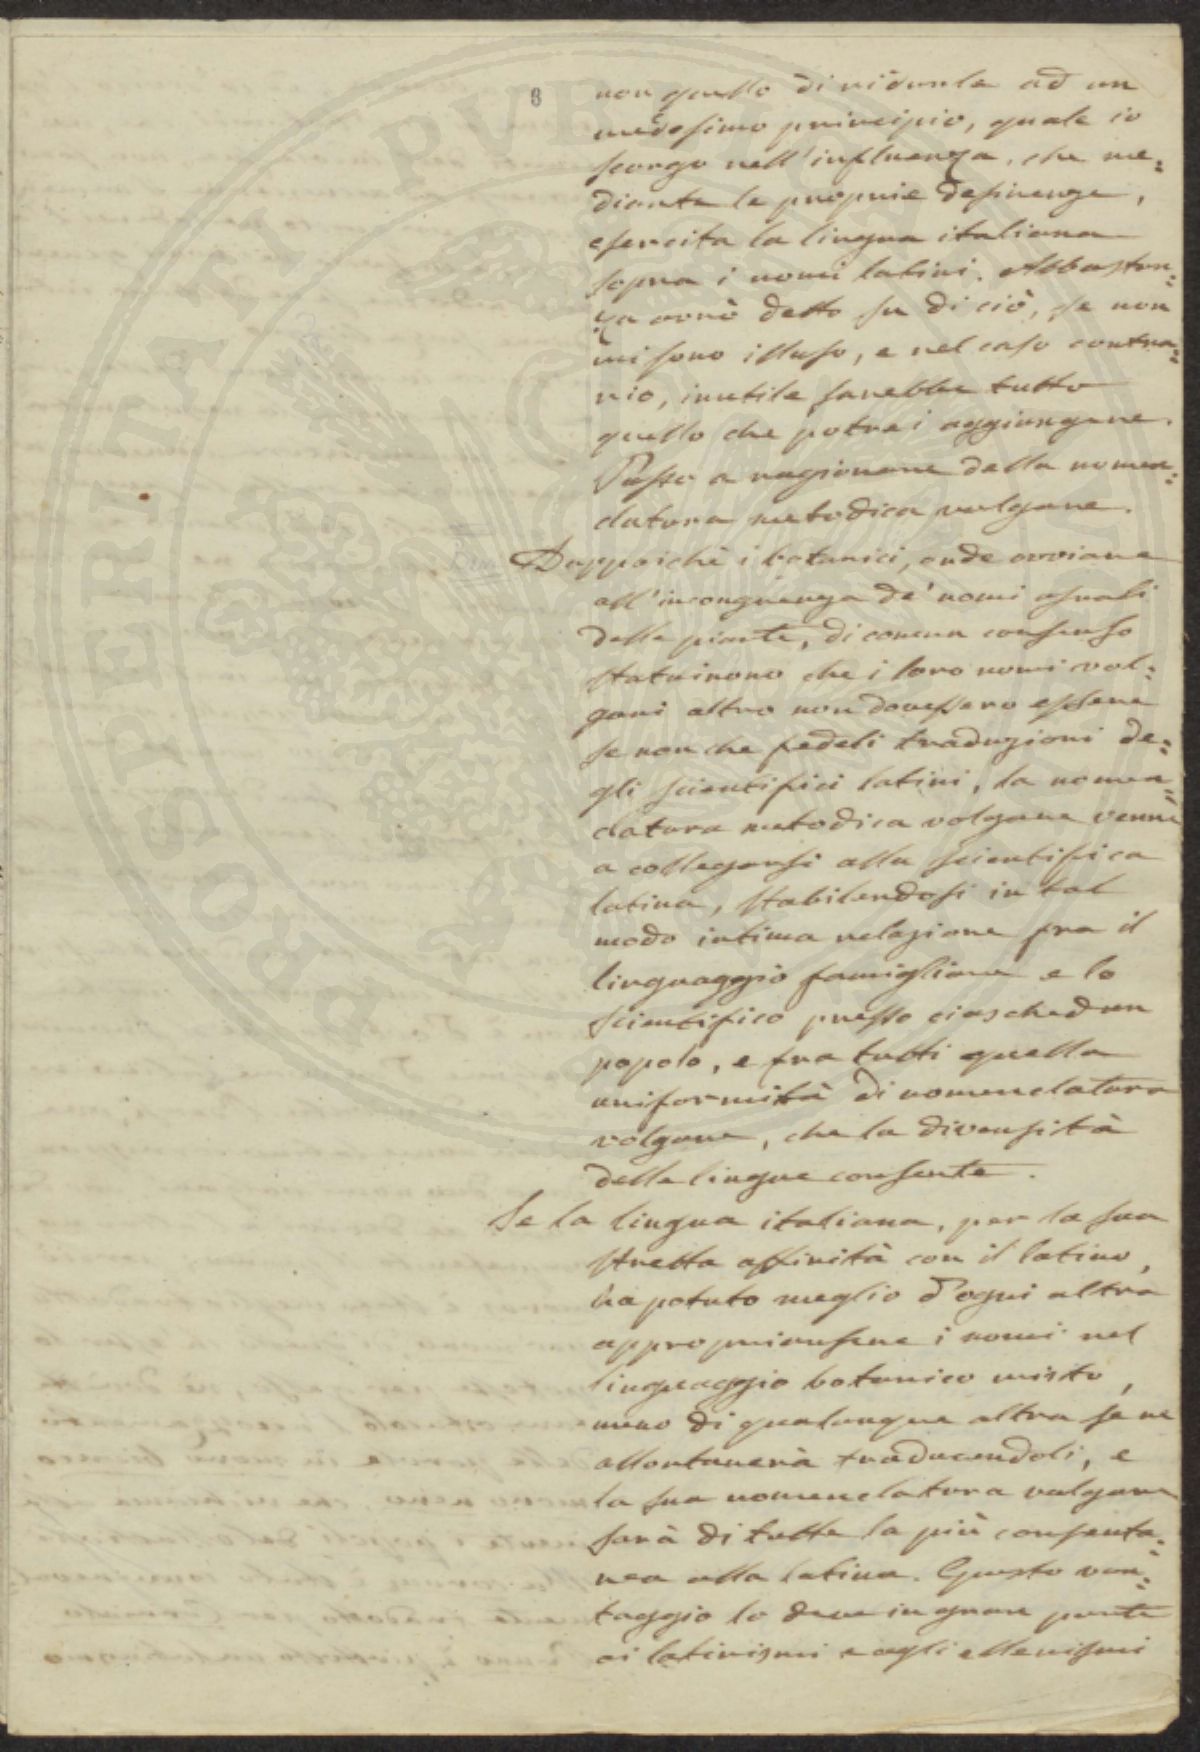 8
non quello di ridurle ad un
medesimo principio, quale io
scorgo nell'influenza, che me=
diante le proprie desinenze,
esercita la lingua italiana
sopra i nomi latini. Abbastan=
za avrò detto su di ciò, se non
mi sono illuso, e nel caso contra=
rio, inutile sarebbe tutto
quello che potrei aggiungere.
Passo a ragionare della nomen=
clatura metodica volgare.
Dappoichè i botanici, onde ovviare
all'incongruenza de' nomi usuali
delle piante, di comun consenso
statuirono che i loro nomi vol=
gari altro non dovessero essere
se non che fedeli traduzioni de=
gli scientifici latini, la nomen=
clatura metodica volgare venne
a collegarsi alla scientifica
latina, stabilendosi in tal
modo intima relazione fra il
linguaggio famigliare e lo
scientifico presso ciaschedun
popolo, e fra tutti quella
uniformità di nomenclatura
volgare, che la diversità
delle lingue consente.
Se la lingua italiana, per la sua
stretta affinità con il latino,
ha potuto meglio d'ogni altra
appropriarsene i nomi nel
linguaggio botanico misto,
meno di qualunque altra se ne
allontanerà traducendoli, e
la sua nomenclatura volgare
sarà di tutte la più consenta=
nea alla latina. Questo van=
taggio lo deve in gran parte
ai latinismi e agli ellenismi
PROSPERITATI PVBLICAE